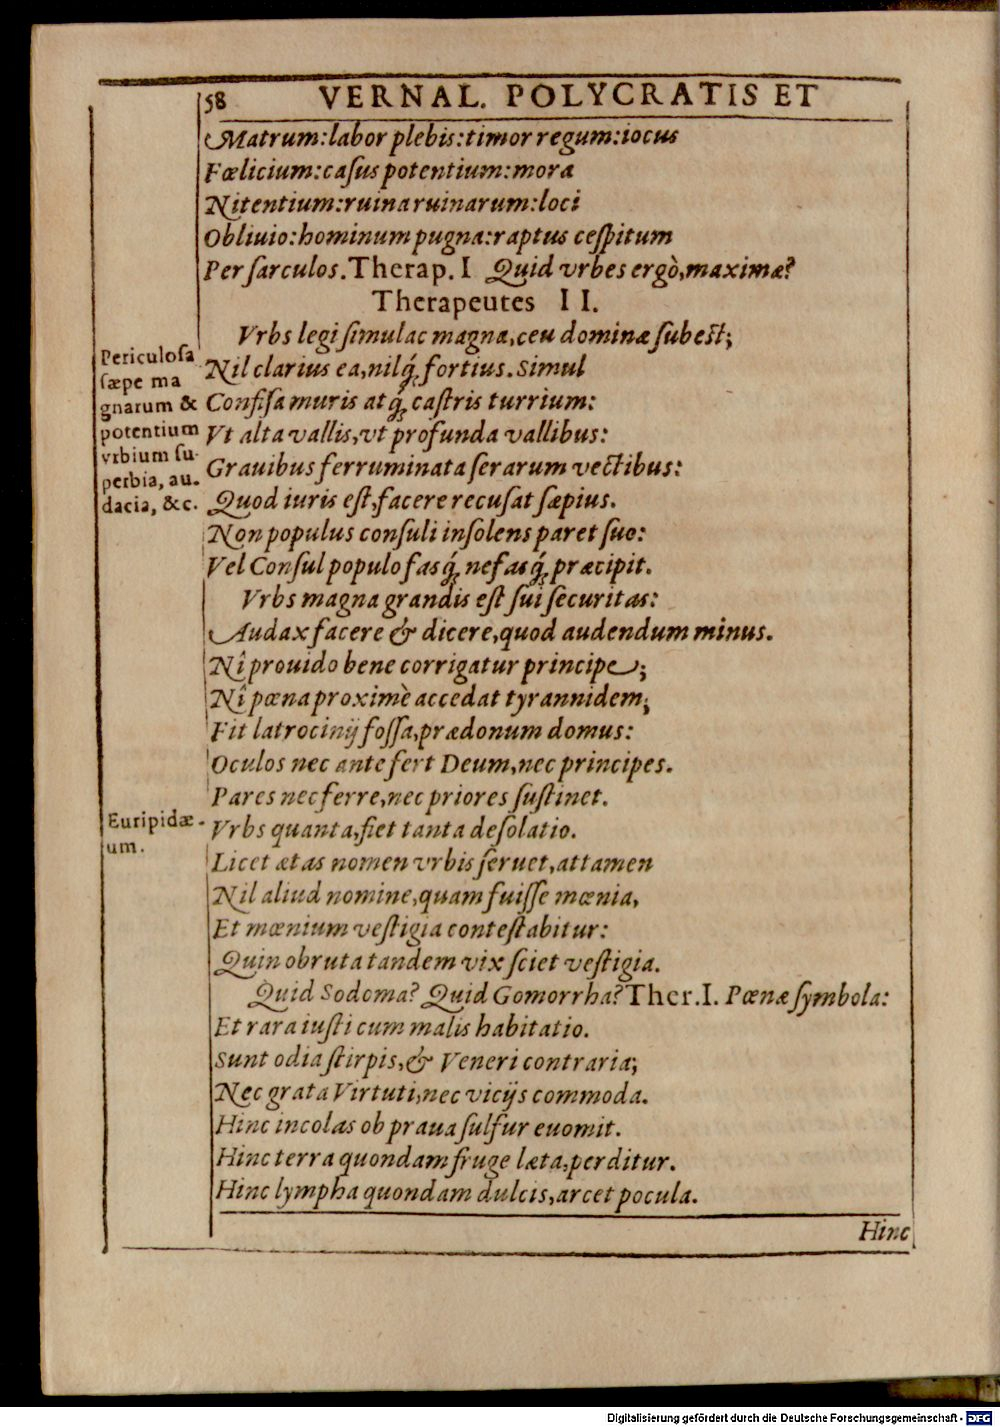 58 VERNAL. POLYCRATIS ET
Matrum: labor plebis: timor regum: iocus
Fœlicium: caſus potentium: mora
Nitentium: ruina ruinarum: loci
Obliuio: hominum pugna: raptus ceſpitum
Per ſarculos. Therap. I Quid vrbes ergò, maximæ?
Therapeutes II.
Vrbs legi ſimulac magna, ceu dominæ ſubeſt;
Nil clarius ea, nilq́; fortius. Simul
Confiſa muris atq́; caſtris turrium:
Vt alta vallis, vt profunda vallibus:
Grauibus ferruminata ſerarum vectibus:
Quod iuris eſt, facere recuſat ſæpius.
Non populus conſuli inſolens paret ſuo:
Vel Conſul populo fasq́; nefasq́; præcipit.
Vrbs magna grandis eſt ſui ſecuritas:
Audax facere & dicere, quod audendum minus.
Nî prouido bene corrigatur principe;
Nî pœna proximè accedat tyrannidem;
Fit latrocinij foſſa, prædonum domus:
Oculos nec ante fert Deum, nec principes.
Pares nec ferre, nec priores ſuſtinet.
Vrbs quanta, fiet tanta deſolatio.
Licet ætas nomen vrbis ſeruet, attamen
Nil aliud nomine, quam fuiſſe mœnia,
Et mœnium veſtigia conteſtabitur:
Quin obruta tandem vix ſciet veſtigia.
Quid Sodoma? Quid Gomorrha? Ther. I. Pœnæ ſymbola:
Et rara iuſti cum malis habitatio.
Sunt odia ſtirpis, & Veneri contraria;
Nec grata Virtuti, nec vicijs commoda.
Hinc incolas ob praua ſulfur euomit.
Hinc terra quondam fruge læta, perditur.
Hinc lympha quondam dulcis, arcet pocula.
Hinc
Periculoſa
ſæpe ma
gnarum &
potentium
vrbium ſu-
perbia, au-
dacia, &c.
Euripidæ-
um.
Digitalisierung gefördert durch die Deutsche Forschungsgemeinschaft - DFG